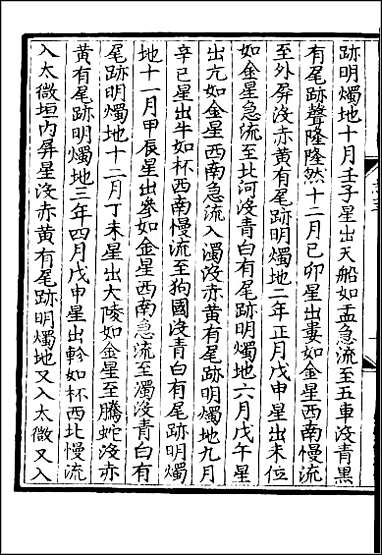 跡明燭地十月壬子星出天船如盂急流至五車沒青黑
有尾跡聲隆隆然十二月己卯星出婁如金星西南慢流
至外屏沒赤黃有尾跡明燭地二年正月戊申星出未位
如金星急流至北河沒青白有尾跡明燭地六月戊午星
出亢如金星西南急流入濁沒赤黃有尾跡明燭地九月
辛己星出牛如杯西南慢流至狗國沒青白有尾跡明燭
地十一月甲辰星出參如金星西南急流至濁沒青白有
尾跡明燭地十二月丁未星出大陵如金星至騰蛇沒赤
黃有尾跡明燭地三年四月戊申星出軫如杯西北慢流
入太微垣內屏星沒赤黃有尾跡明燭地又入太微又入